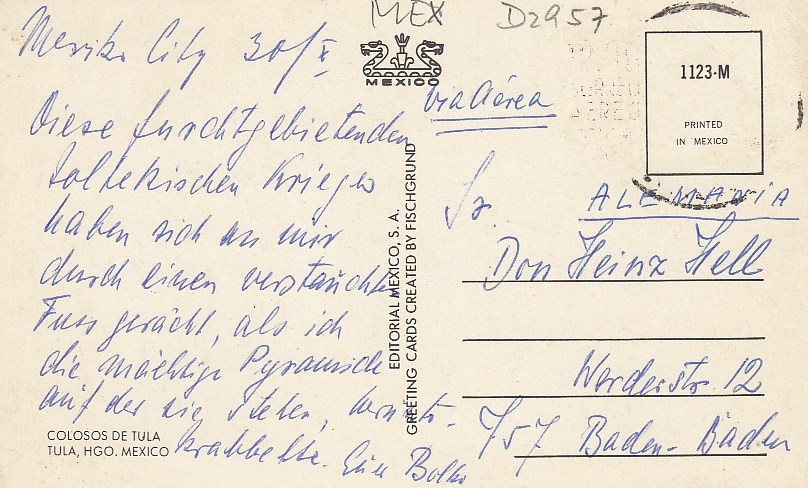 MEX D2957
Mexiko City 30/X
MEXICO
Via Aérea
1123-M
PRINTED
IN MEXICO
Diese furchtgebietenden
toltekischen Krieger
haben sich an mir
durch einen verstauchten
Fuss gerächt, als ich
die mächtige Pyramide
auf der sie stehen,
krabbelte.
COLOSOS DE TULA
TULA, HGO. MEXICO
EDITORIAL MEXICO, S. A.
GREETING CARDS CREATED BY FISCHGRUND
Sr. ALEMANIA
Don Heinz Hell
Werderstr. 12
757 Baden-Baden